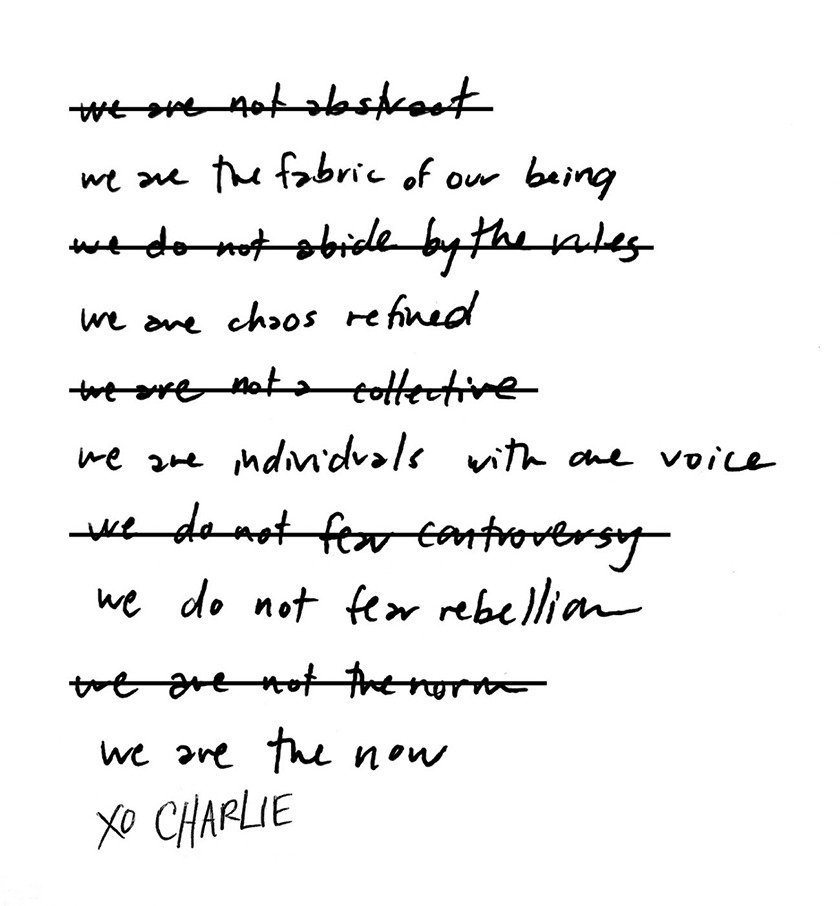 we are not abstract
we are the fabric of our being
we do not abide by the rules
we are chaos refined
we are not a collective
we are individuals with one voice
we do not fear controversy
we do not fear rebellion
we are not the norm
we are the now
XO CHARLIE